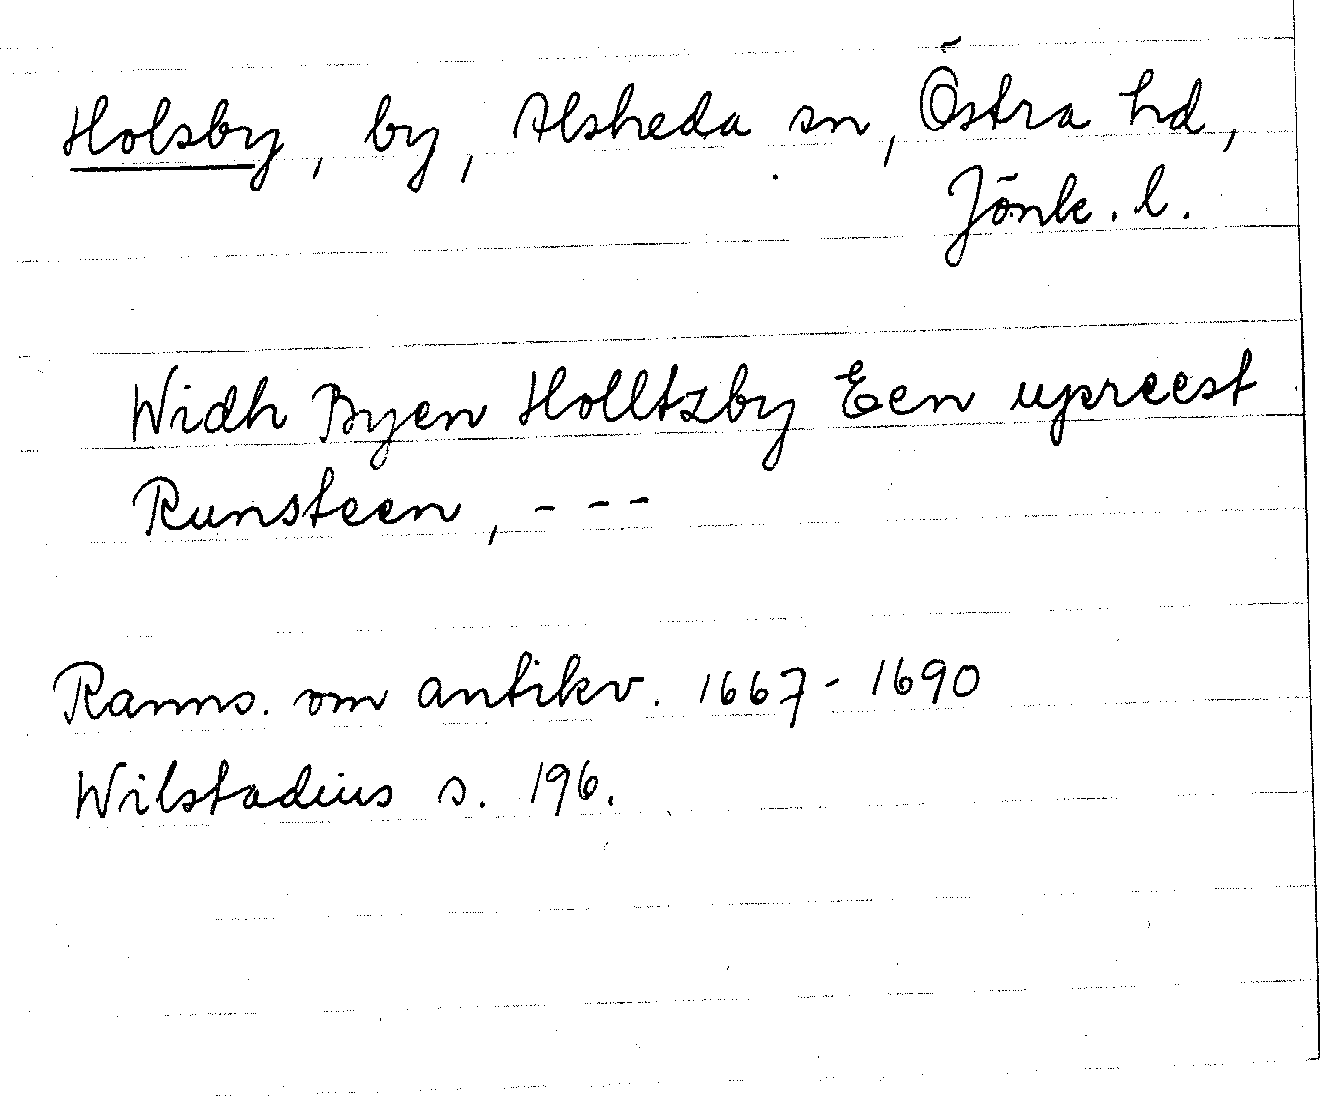 Holsby, by, Alsheda sn, Östra hd,
Jönk. l.
Widh Byen Holltzby Een upreest
Runsteen, - - -
Ranns. om antikv. 1667 - 1690
Wilstadius s. 196.